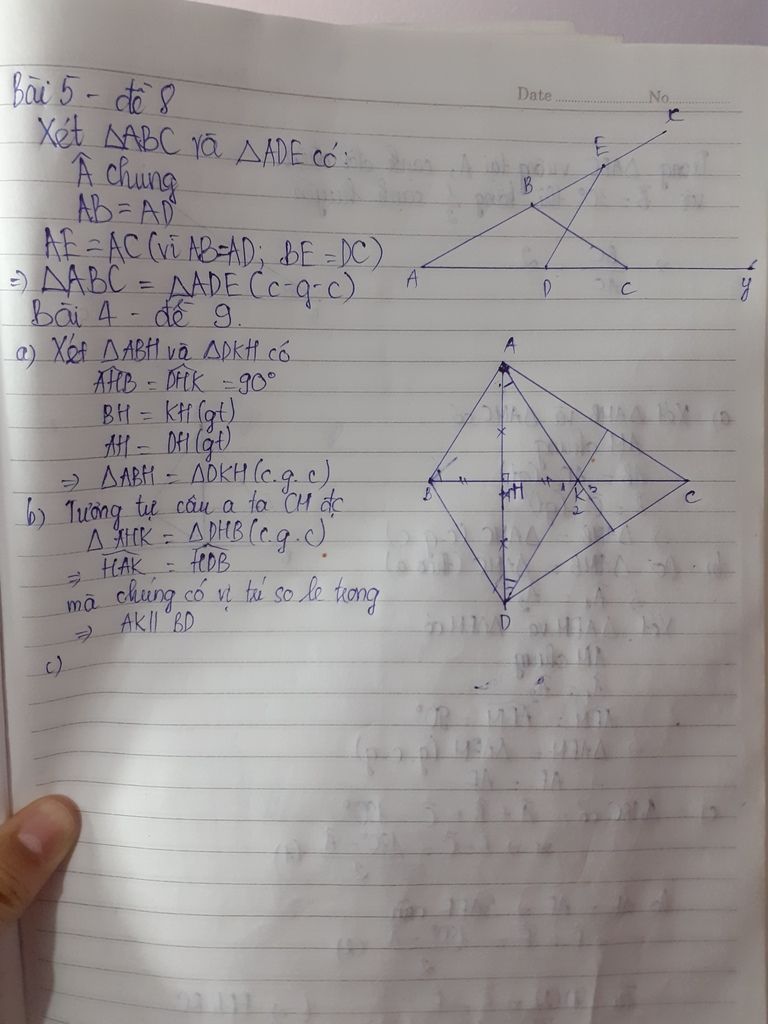 Date No
Bài 5 - đề 8
Xét △ABC và △ADE có:
Â chung
AB = AD
AE = AC (vì AB=AD; BE = DC)
=> △ABC = △ADE (c-g-c)
x
E
B
A
D
C
y
Bài 4 - đề 9.
a) Xét △ABH và △DKH có
AHB = DHK = 90°
BH = KH (gt)
AH = DH (gt)
=> △ABH = △DKH (c.g.c)
b) Tương tự câu a ta CM đc
△ AHK = △DHB (c.g.c)
=> HAK = HDB
mà chúng có vị trí so le trong
=> AK // BD
c)
A
B
1
H
1
K
3
2
C
D